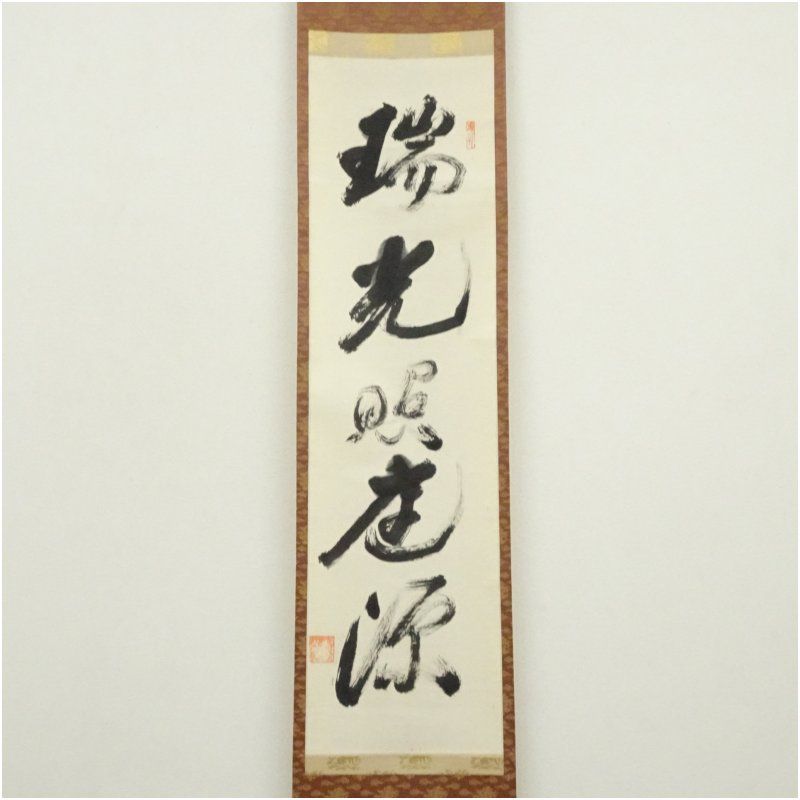 瑞光照庭源